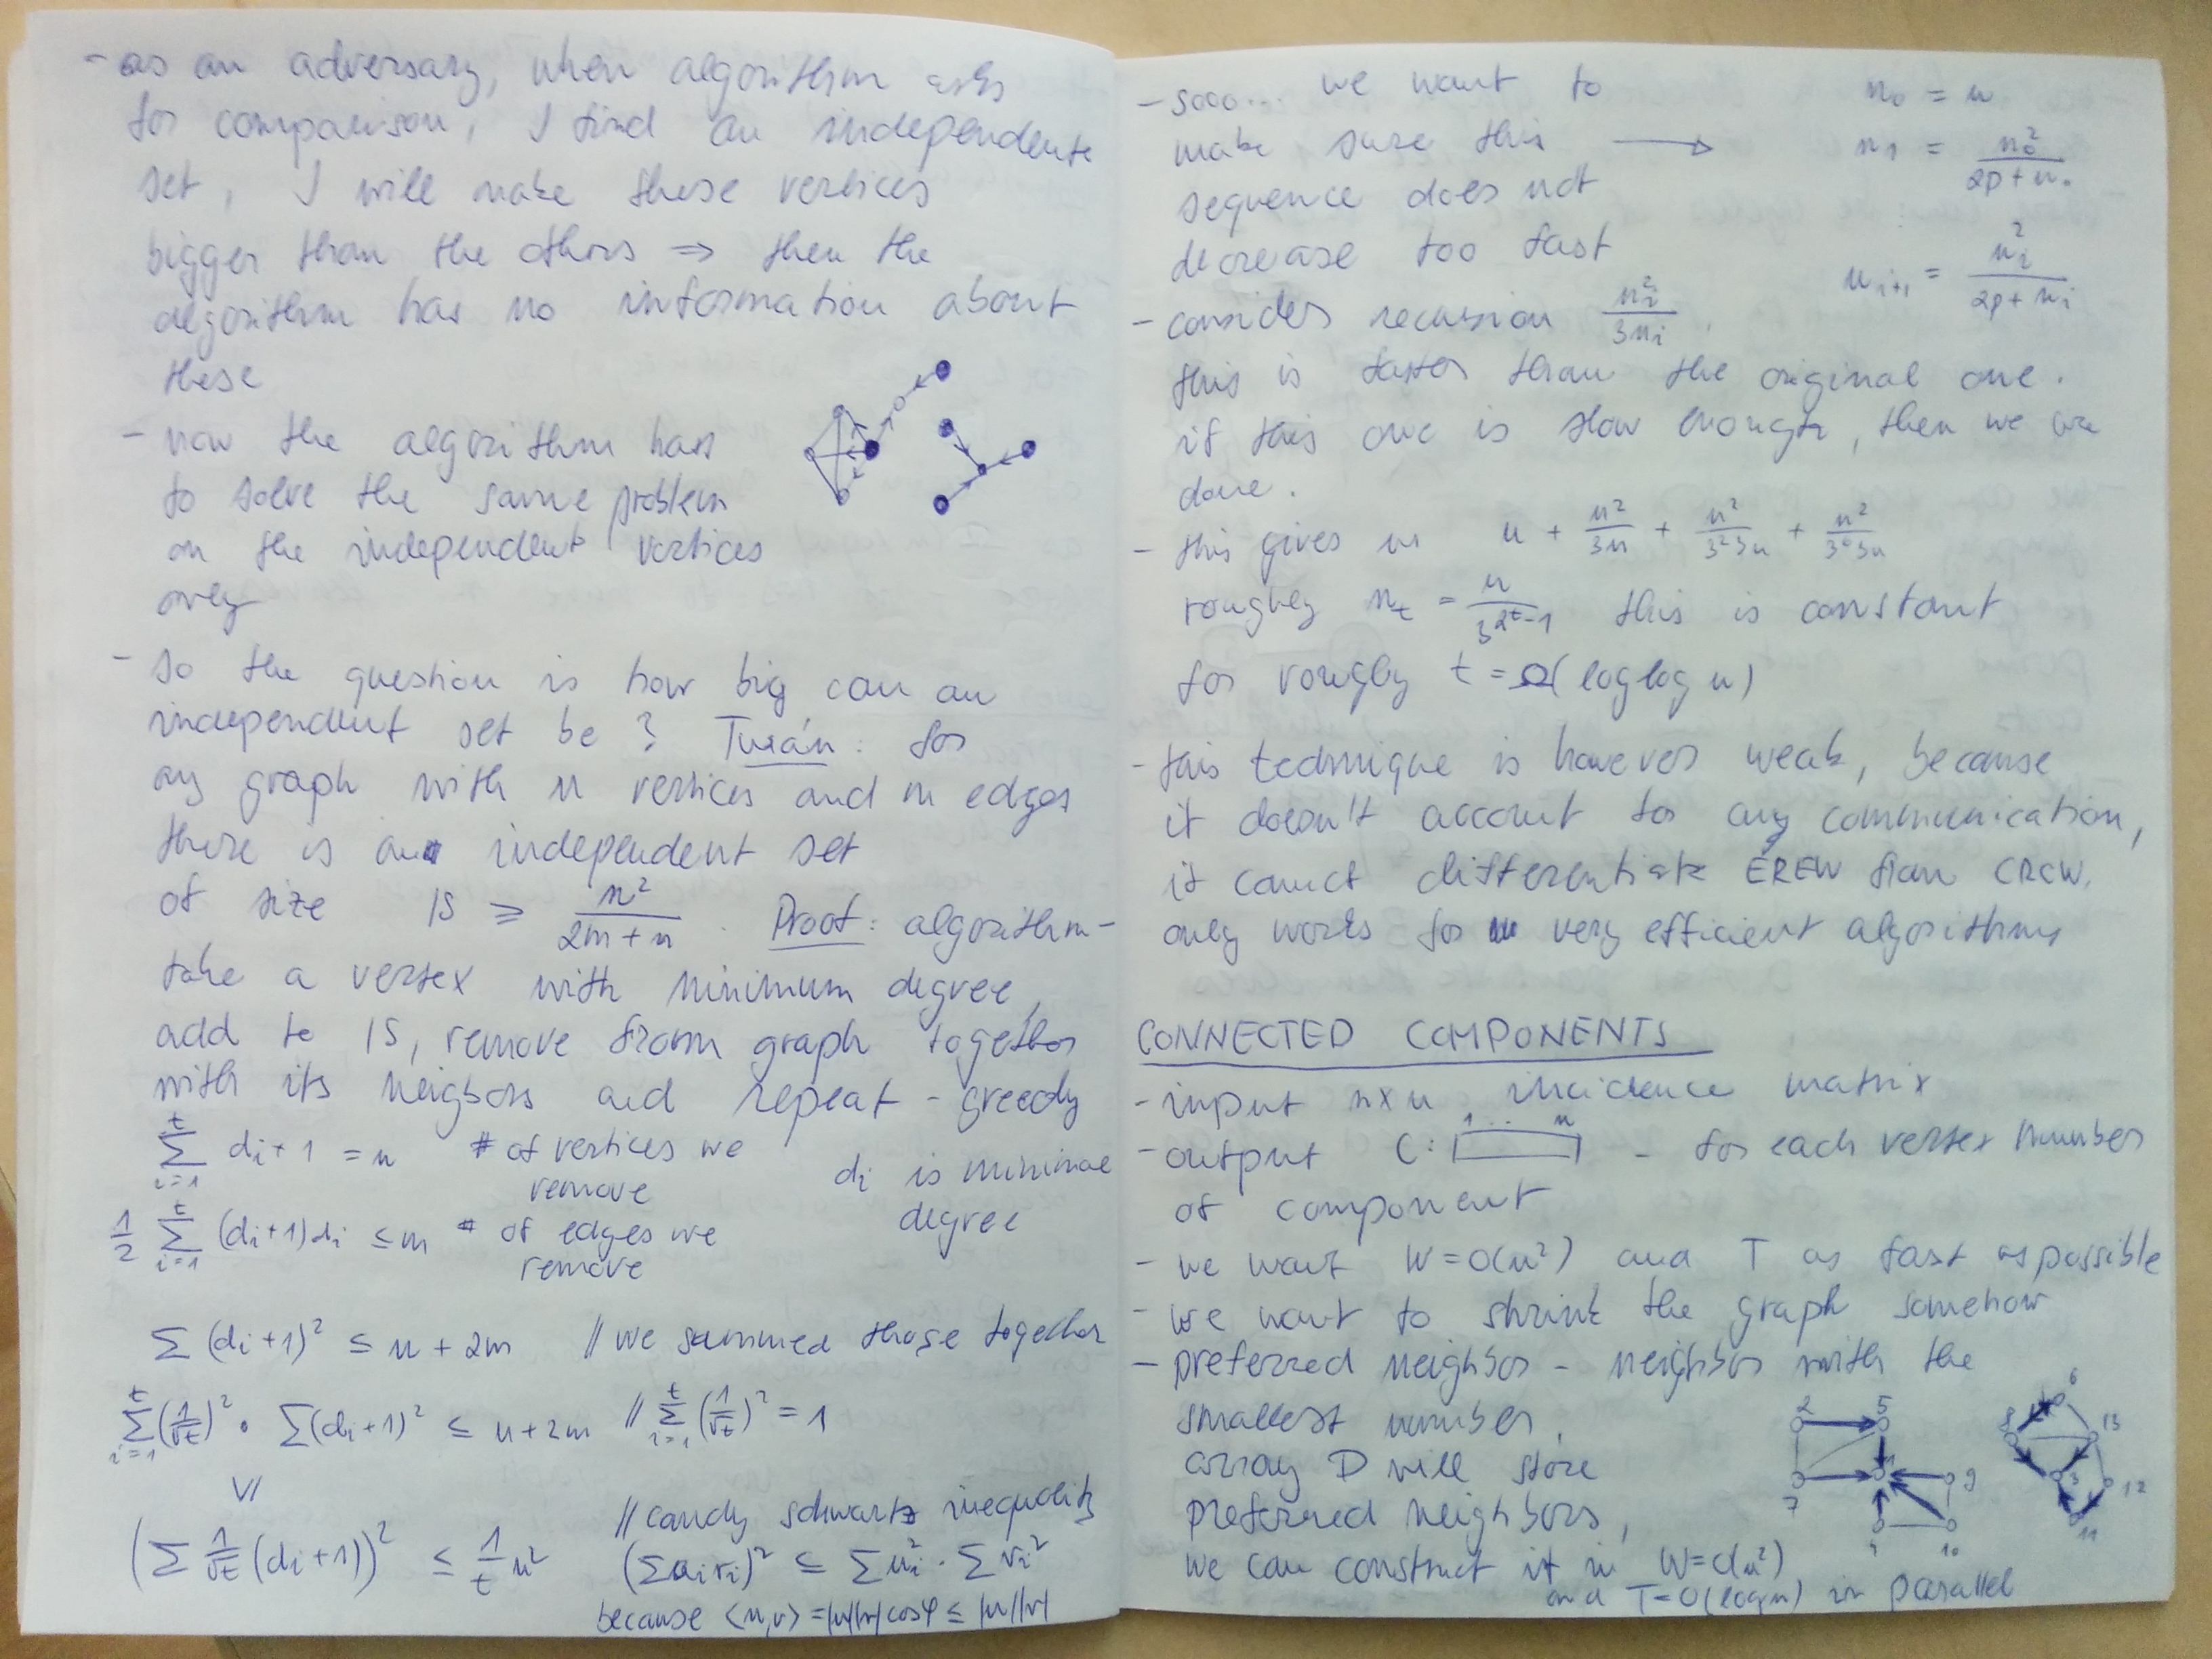 - as an adversary, when algorithm asks
for comparison, I find an independente
set, I will make these vertices
bigger than the others ⇒ then the
algorithm has no information about
these
- now the algorithm has
to solve the same problem
on the independent vertices
only
- so the question is how big can an
independent set be? Turán: for
any graph with n vertices and m edges
there is an independent set
of size IS ≥ n²/(2m+n). Proof: algorithm -
take a vertex with minimum degree,
add to IS, remove from graph together
with its neigbors and repeat - greedy
∑_{i=1}^{t} di+1 = n # of vertices we remove
di is minimal degree
1/2 ∑_{i=1}^{t} (di+1)di ≤ m # of edges we remove
∑ (di+1)² ≤ n + 2m // we summed those together
∑_{i=1}^{t} (1/√t)² · ∑(di+1)² ≤ n+2m // ∑_{i=1}^{t} (1/√t)² = 1
\/|
(∑ 1/√t (di+1))² ≤ 1/t n²
// cauchy schwartz inequality
(∑ui vi)² ≤ ∑ui² · ∑vi²
because <u,v> = |u||v| cosφ ≤ |u||v|
- sooo... we want to
make sure this →
sequence does not
decrease too fast
n₀ = n
n₁ = n₀²/(2p+n₀)
n_{i+1} = n_i²/(2p+n_i)
- consider recursion n_i²/3n_i,
this is faster than the original one.
if this one is slow enough, then we are
done.
- this gives us n + n²/3n + n²/3²3n + n²/3⁶3n
roughly n_t = n/3^{2^t-1} this is constant
for rougly t = Ω(log log n)
- this technique is however weak, because
it doesn't account for any communication,
it cannot differentiate EREW from CRCW.
only works for very efficient algorithms
CONNECTED COMPONENTS
- input n×n incidence matrix
1 ... n
- output C: - for each vertex number
of component
- we want W=O(n²) and T as fast as possible
- we want to shrink the graph somehow
- preferred neighbor - neighbor with the
smallest number,
array D will store
preferred neighbors,
we can construct it in W=O(n²)
and T=O(log n) in parallel
2 5
7 1 9
4 10
6
8 13
3 12
11